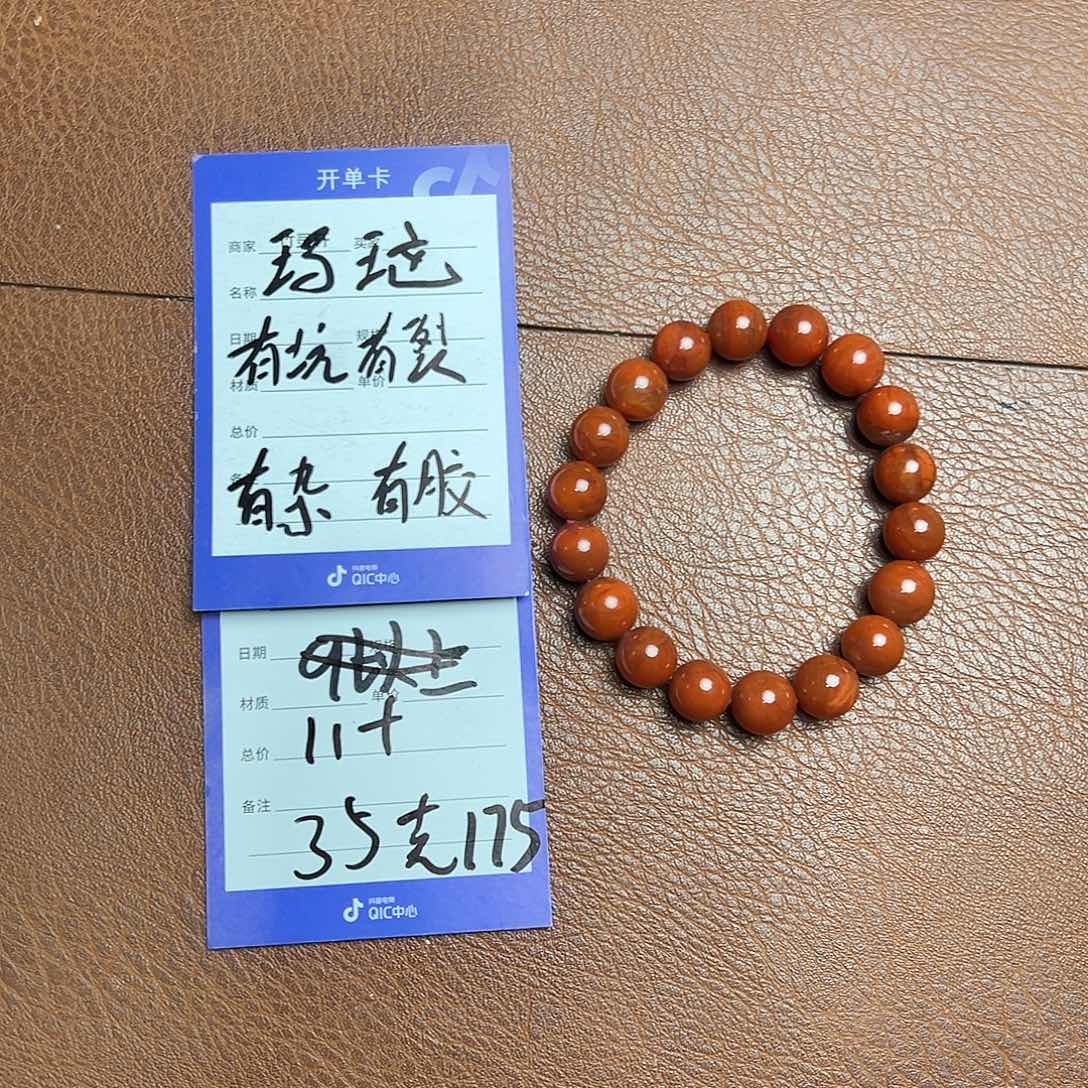 开单卡
商家 买家
名称 玛瑙
日期 规格
有坑有裂
材质 单价
总价
有杂 有胶
抖音电商
QIC中心
日期
材质 单价
11+
总价
备注
35克175
抖音电商
QIC中心